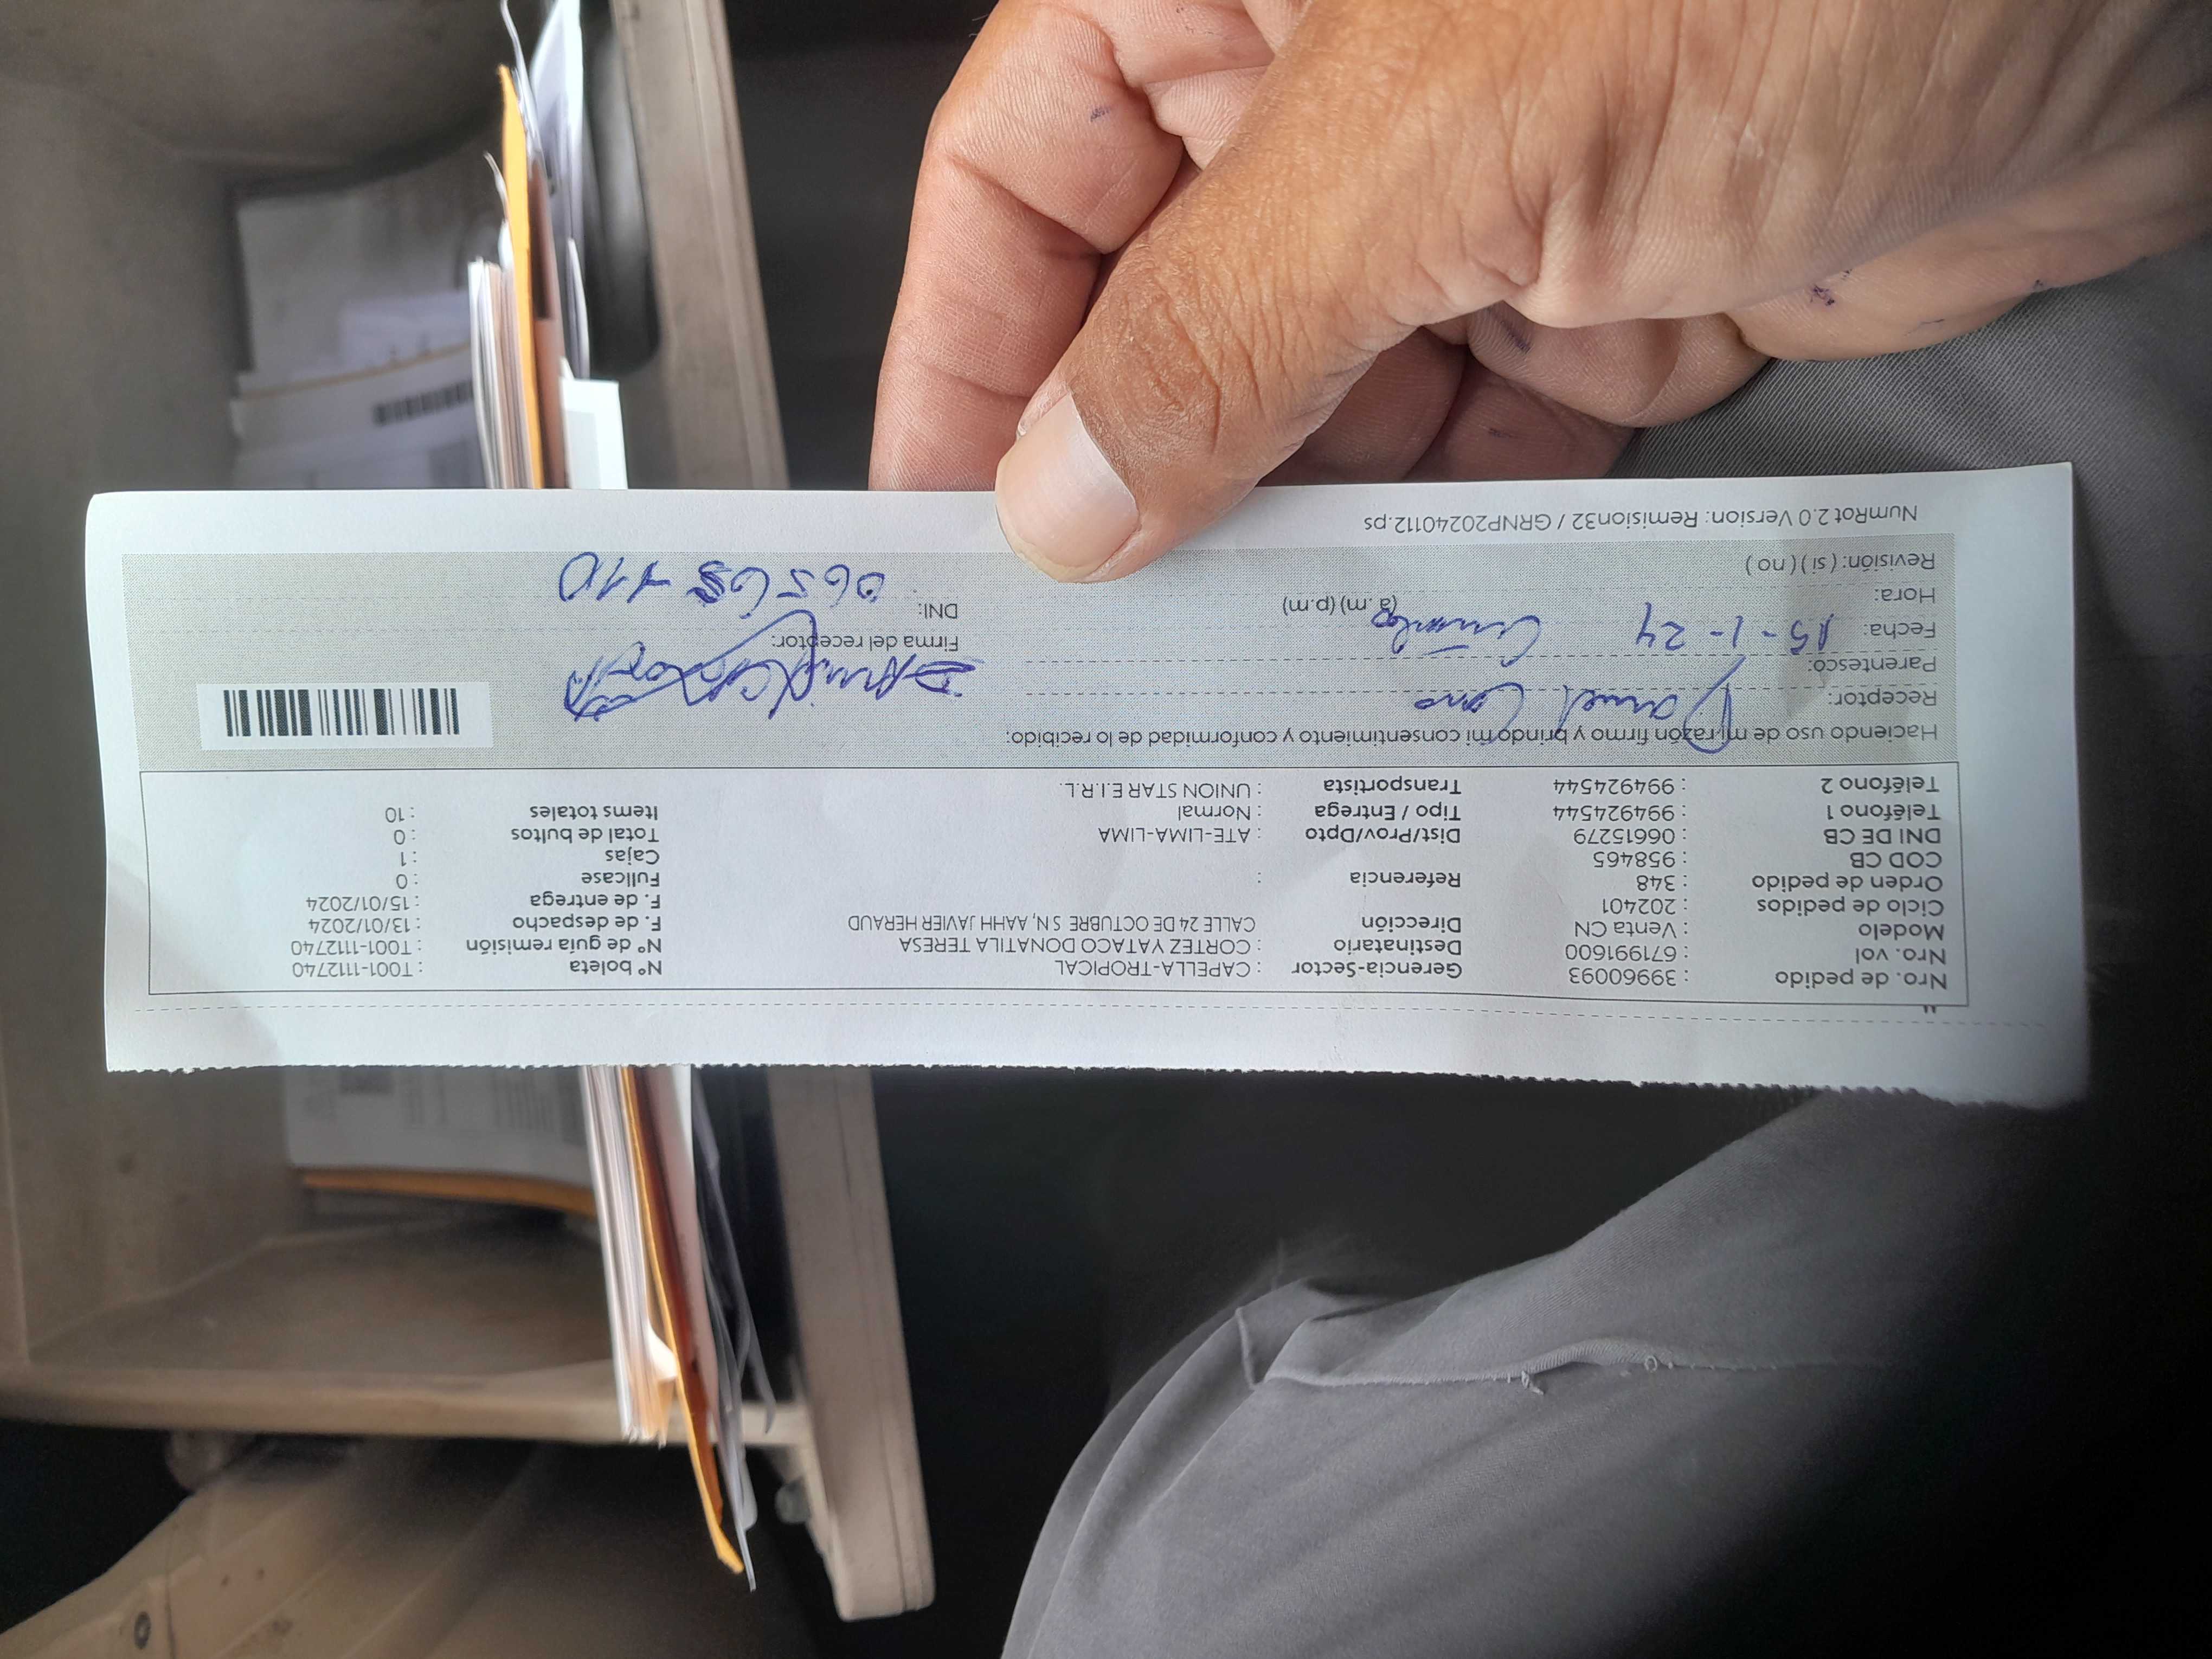 Nro. de pedido : 39960093 Gerencia-Sector : CAPELLA-TROPICAL Nº boleta : T001-1112740
Nro. vol : 671991600 Destinatario : CORTEZ YATACO DONATILA TERESA Nº de guía remisión : T001-1112740
Modelo : Venta CN Dirección CALLE 24 DE OCTUBRE SN, AAHH JAVIER HERAUD F. de despacho : 13/01/2024
Ciclo de pedidos : 202401 F. de entrega : 15/01/2024
Orden de pedido : 348 Referencia : Fullcase : 0
COD CB : 958465 Cajas : 1
DNI DE CB : 06615279 Dist/Prov/Dpto : ATE-LIMA-LIMA Total de bultos : 0
Teléfono 1 : 994924544 Tipo / Entrega : Normal Items totales : 10
Teléfono 2 : 994924544 Transportista : UNION STAR E.I.R.L.
Haciendo uso de mi razón firmo y brindo mi consentimiento y conformidad de lo recibido:
Receptor: Daniel Cano
Parentesco:
Fecha: 15-1-24 Firma del receptor:
Hora: (a.m) (p.m) DNI:
Revisión: ( si ) ( no )
NumRot 2.0 Version: Remision32 / GRNP20240112.ps